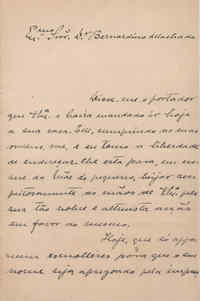 Exmo. Snr. Dr. Bernardino Machado
Disse-me o portador
que V. Exa. o havia mandado ir hoje
a sua casa. Elle, cumprindo as suas
ordens, vae, e eu tomo a liberdade
de endereçar-lhe esta para, em no-
me da mãe do pequeno, beijar res-
peitosamente as mãos de V. Exa. pela
sua tão nobre e altruista acção
em favor do mesmo.
Hoje, que só appa
recem
para que o seu
nome seja apregoado pela impren